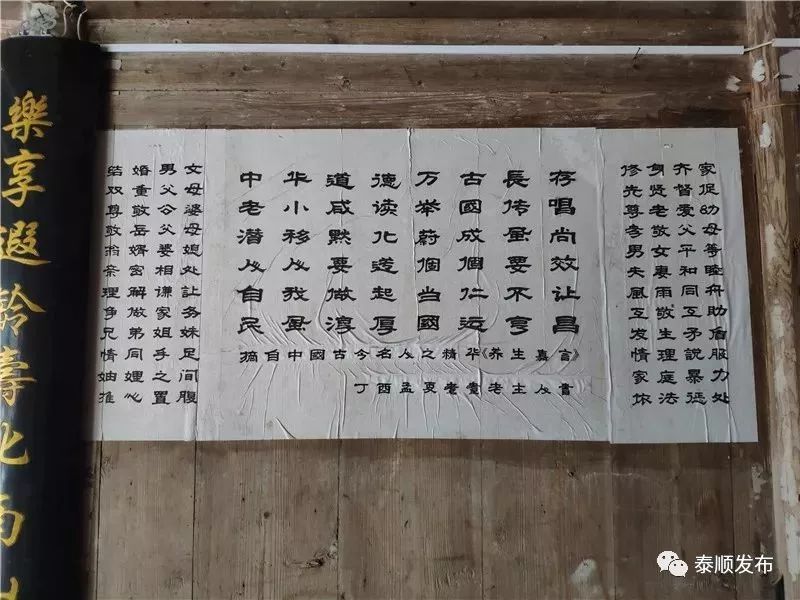 樂享遐龄壽比南
结婚男女
双重父母
尊敬公婆
敬岳父母
翁婿婆媳
亲密相处
理解谦让
争做家务
兄弟姐妹
情同手足
妯娌之间
推心置腹
中华道德万古長存
老小咸读举國传唱
潜移默化蔚成風尚
人人要造個個要效
自我做起当仁不让
民風淳厚國运昌亨
摘自中國古今名人之精华《养生嘉言》
丁酉孟夏老生人書
修身齐家
先贤督促
尊老爱幼
孝敬父母
男女平等
夫妻和睦
風雨同舟
互敬互助
发生矛盾
情理説服
家庭暴力
依法惩处
泰顺发布